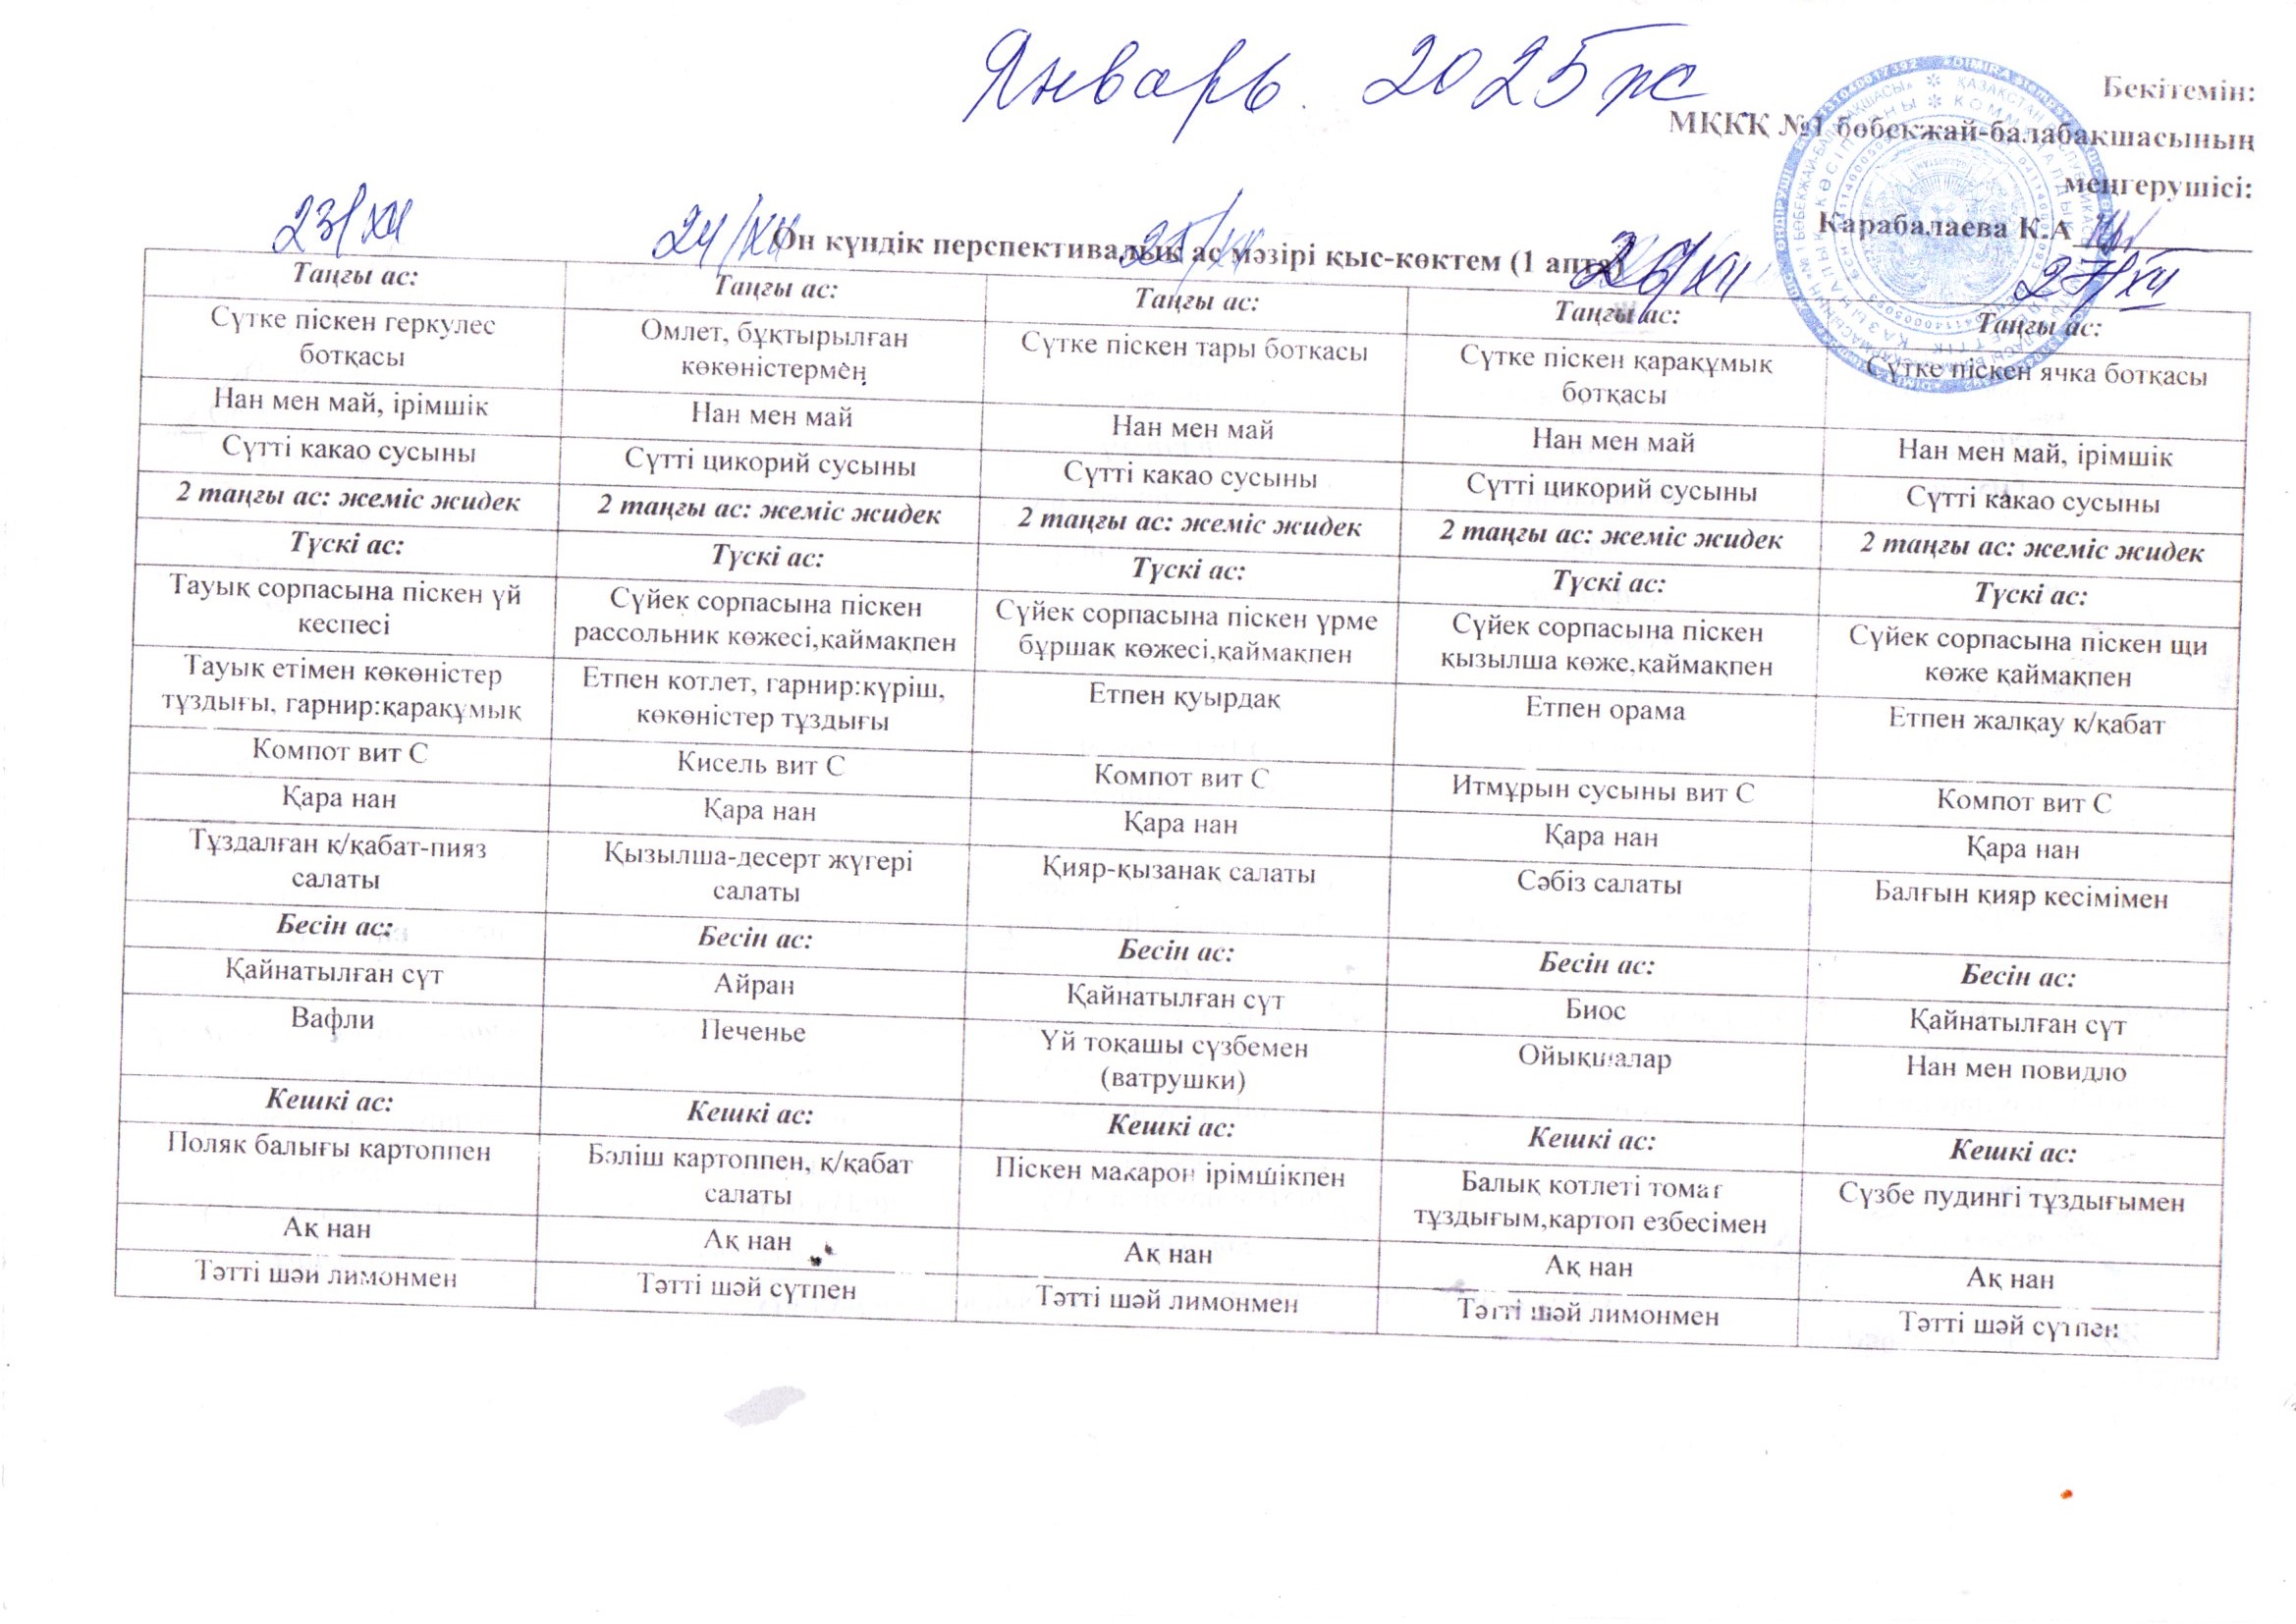 Январь 2025 ж
Бекітемін:
МҚКҚ №1 бөбекжай-балабақшасының
меңгерушісі:
Карабалаева К.А
23/XII 24/XII 25/XII 26/XII 27/XII
Он күндік перспективалық ас мәзірі қыс-көктем (1 апта)
Таңғы ас: Таңғы ас: Таңғы ас: Таңғы ас: Таңғы ас:
Сүтке піскен геркулес Омлет, бұқтырылған Сүтке піскен тары ботқасы Сүтке піскен қарақұмық Сүтке піскен ячка ботқасы
ботқасы көкөністермен ботқасы
Нан мен май, ірімшік Нан мен май Нан мен май Нан мен май Нан мен май, ірімшік
Сүтті какао сусыны Сүтті цикорий сусыны Сүтті какао сусыны Сүтті цикорий сусыны Сүтті какао сусыны
2 таңғы ас: жеміс жидек 2 таңғы ас: жеміс жидек 2 таңғы ас: жеміс жидек 2 таңғы ас: жеміс жидек 2 таңғы ас: жеміс жидек
Түскі ас: Түскі ас: Түскі ас: Түскі ас: Түскі ас:
Тауық сорпасына піскен үй Сүйек сорпасына піскен Сүйек сорпасына піскен үрме Сүйек сорпасына піскен Сүйек сорпасына піскен щи
кеспесі рассольник көжесі,қаймақпен бұршақ көжесі,қаймақпен қызылша көже,қаймақпен көже қаймақпен
Тауық етімен көкөністер Етпен котлет, гарнир:күріш, Етпен қуырдақ Етпен орама Етпен жалқау қ/қабат
тұздығы, гарнир:қарақұмық көкөністер тұздығы
Компот вит С Кисель вит С Компот вит С Итмұрын сусыны вит С Компот вит С
Қара нан Қара нан Қара нан Қара нан Қара нан
Тұздалған қ/қабат-пияз Қызылша-десерт жүгері Қияр-қызанақ салаты Сәбіз салаты Балғын қияр кесімімен
салаты салаты
Бесін ас: Бесін ас: Бесін ас: Бесін ас: Бесін ас:
Қайнатылған сүт Айран Қайнатылған сүт Биос Қайнатылған сүт
Вафли Печенье Үй тоқашы сүзбемен Ойықшалар Нан мен повидло
(ватрушки)
Кешкі ас: Кешкі ас: Кешкі ас: Кешкі ас: Кешкі ас:
Поляк балығы картоппен Бәліш картоппен, қ/қабат Піскен макарон ірімшікпен Балық котлеті томат Сүзбе пудингі тұздығымен
салаты тұздығым,картоп езбесімен
Ақ нан Ақ нан Ақ нан Ақ нан Ақ нан
Тәтті шәй лимонмен Тәтті шәй сүтпен Тәтті шәй лимонмен Тәтті шәй лимонмен Тәтті шәй сүтпен